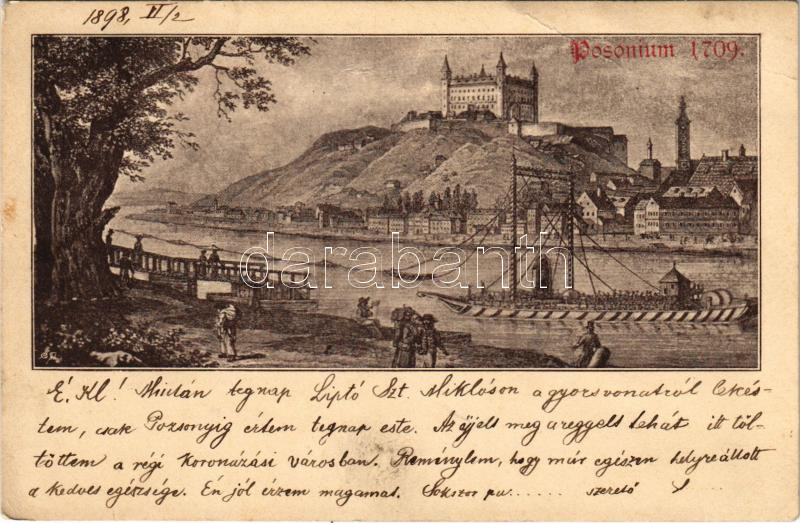 1898, II/2
Posonium 1709.
darabanth
É. Kl! Miután tegnap Liptó Szt. Miklóson a gyorsvonatról lekés-
tem, csak Pozsonyig értem tegnap este. Az éjjelt meg a reggelt tehát itt töl-
töttem a régi koronázási városban. Reménylem, hogy már egészen helyreállott
a kedves egészsége. Én jól érzem magamat. Sokszor pu...... szerető